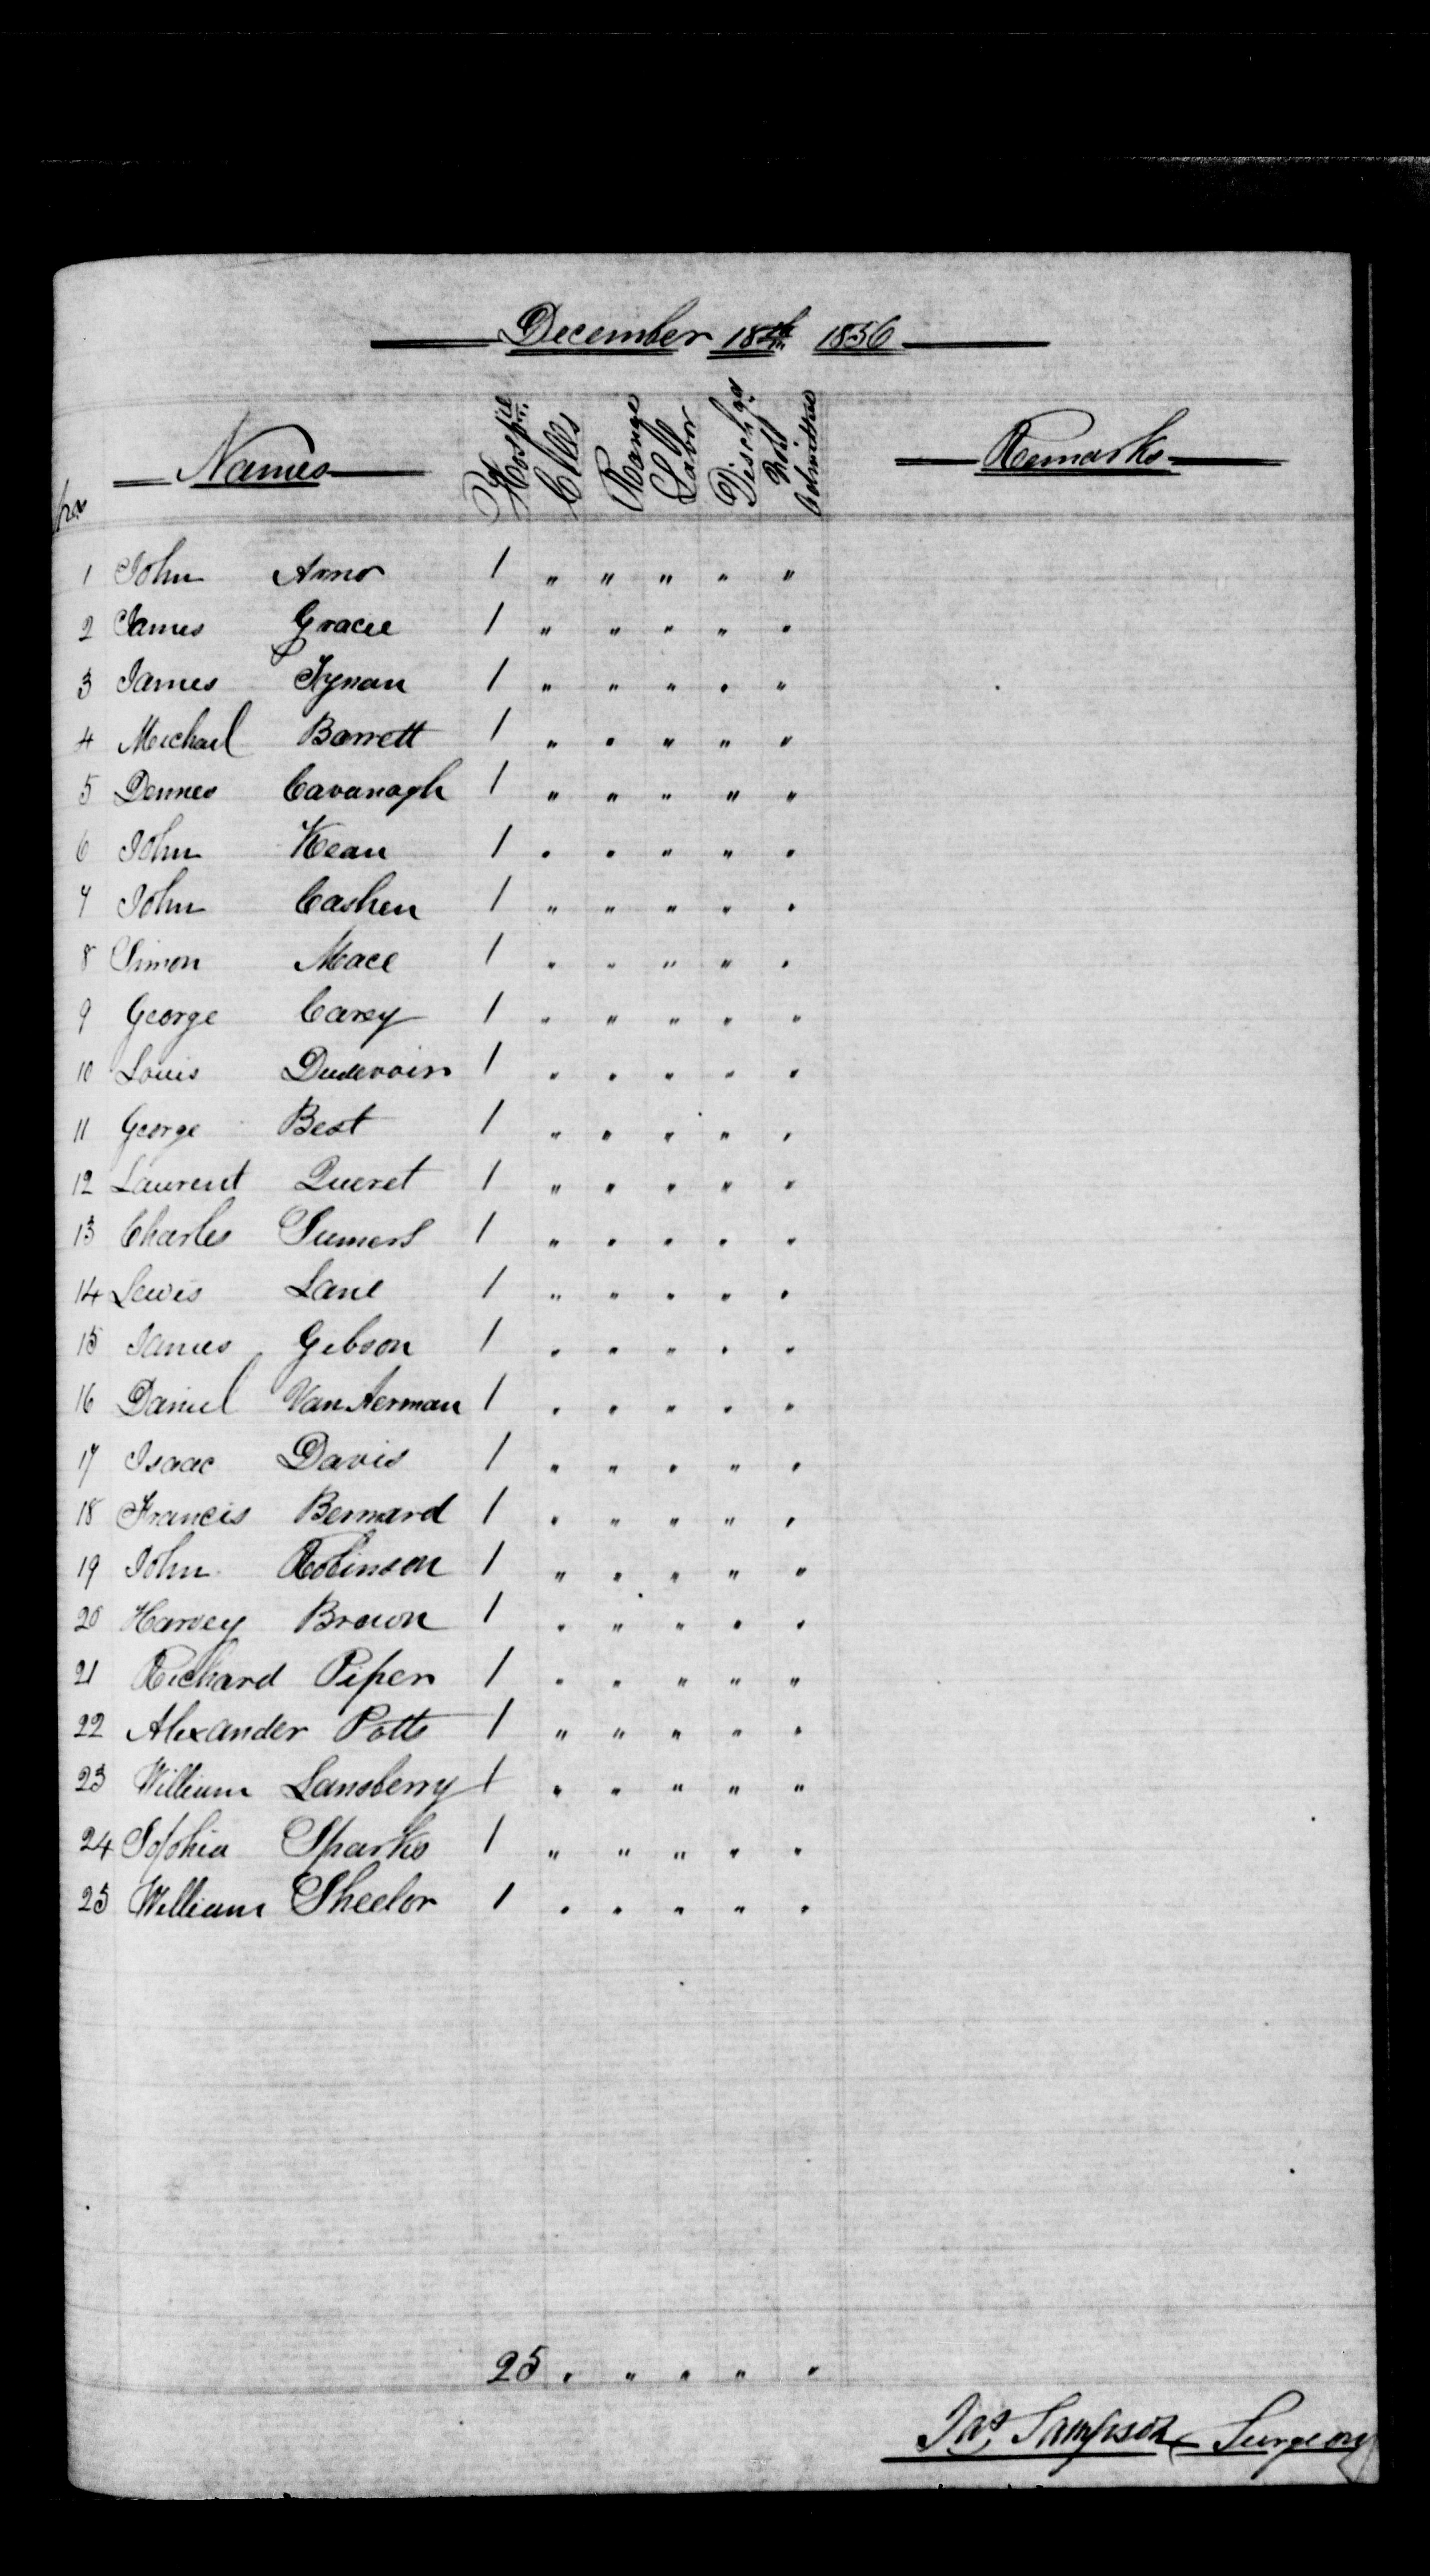 December 18th 1856
Nos Names Hospil Cells Range Labor Dischgd Not Admitted Remarks
1 John Arno 1 " " " " "
2 James Gracie 1 " " " " "
3 James Tynan 1 " " " " "
4 Meichael Barrett 1 " " " " "
5 Dennes Cavanagh 1 " " " " "
6 John Kean 1 " " " " "
7 John Cashen 1 " " " " "
8 Simon Mace 1 " " " " "
9 George Carey 1 " " " " "
10 Louis Dudevoir 1 " " " " "
11 George Best 1 " " " " "
12 Laurent Queret 1 " " " " "
13 Charles Sumers 1 " " " " "
14 Lewis Lane 1 " " " " "
15 James Gibson 1 " " " " "
16 Daniel Van Aerman 1 " " " " "
17 Isaac Davis 1 " " " " "
18 Francis Bernard 1 " " " " "
19 John Robinson 1 " " " " "
20 Harvey Brown 1 " " " " "
21 Richard Piper 1 " " " " "
22 Alexander Potts 1 " " " " "
23 William Lansberry 1 " " " " "
24 Sophia Sparks 1 " " " " "
25 William Sheelor 1 " " " " "
25 " " " " "
Jas Sampson Surgeon